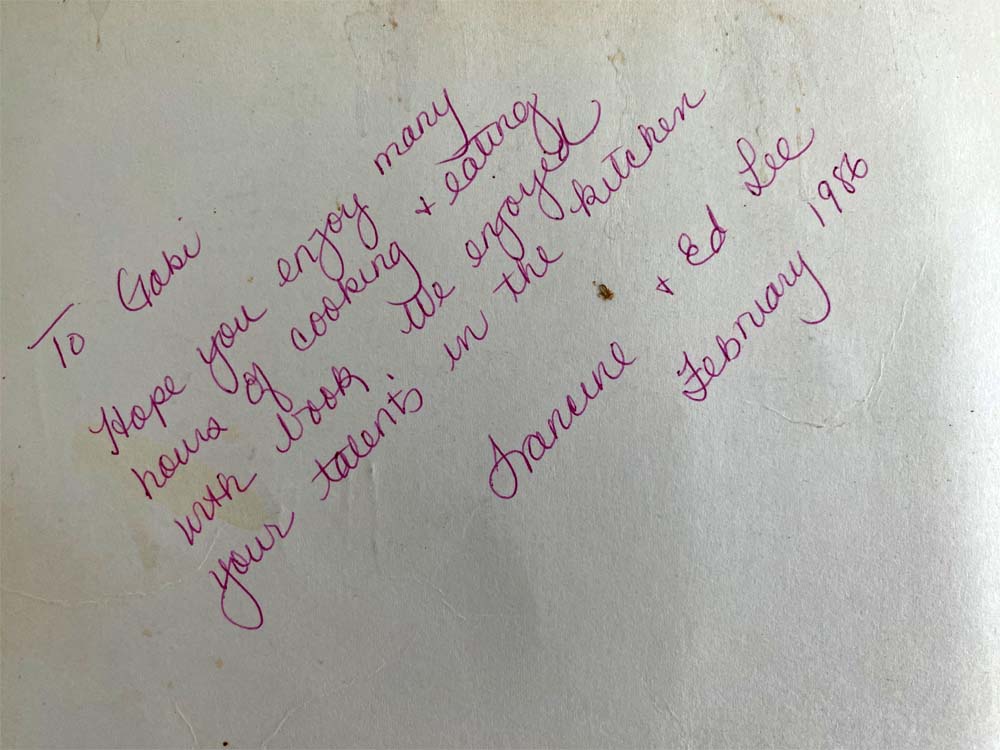 To Gabi
Hope you enjoy many
hours of cooking + eating
with book. We enjoyed
your talents in the kitchen
Francine + Ed Lee
February 1986